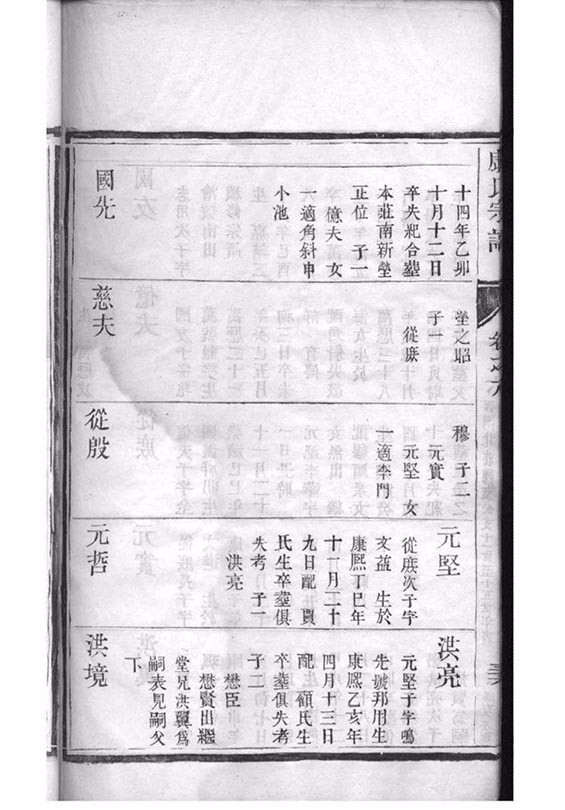 盧氏宗譜
卷之六
十四年乙卯
十月十二日
卒失䄫合塟
本莊南新塋
正位 子一
億夫 女
一適角斜申
小池
國先
塋之昭
子一
從庶
慈夫
穆 子二
元實
元堅 女
一適李門
從殷
元堅
從庶次子字
文益 生於
康熙丁巳年
十一月二十
九日配賈
氏生卒塟俱
失考 子一
洪亮
元哲
洪亮
元堅子字鳴
先號邦用生
康熙乙亥年
四月十三日
配顧氏生
卒塟俱失考
子二
懋臣
懋賢出繼
堂兄洪翼爲
嗣表見嗣父
下
洪境